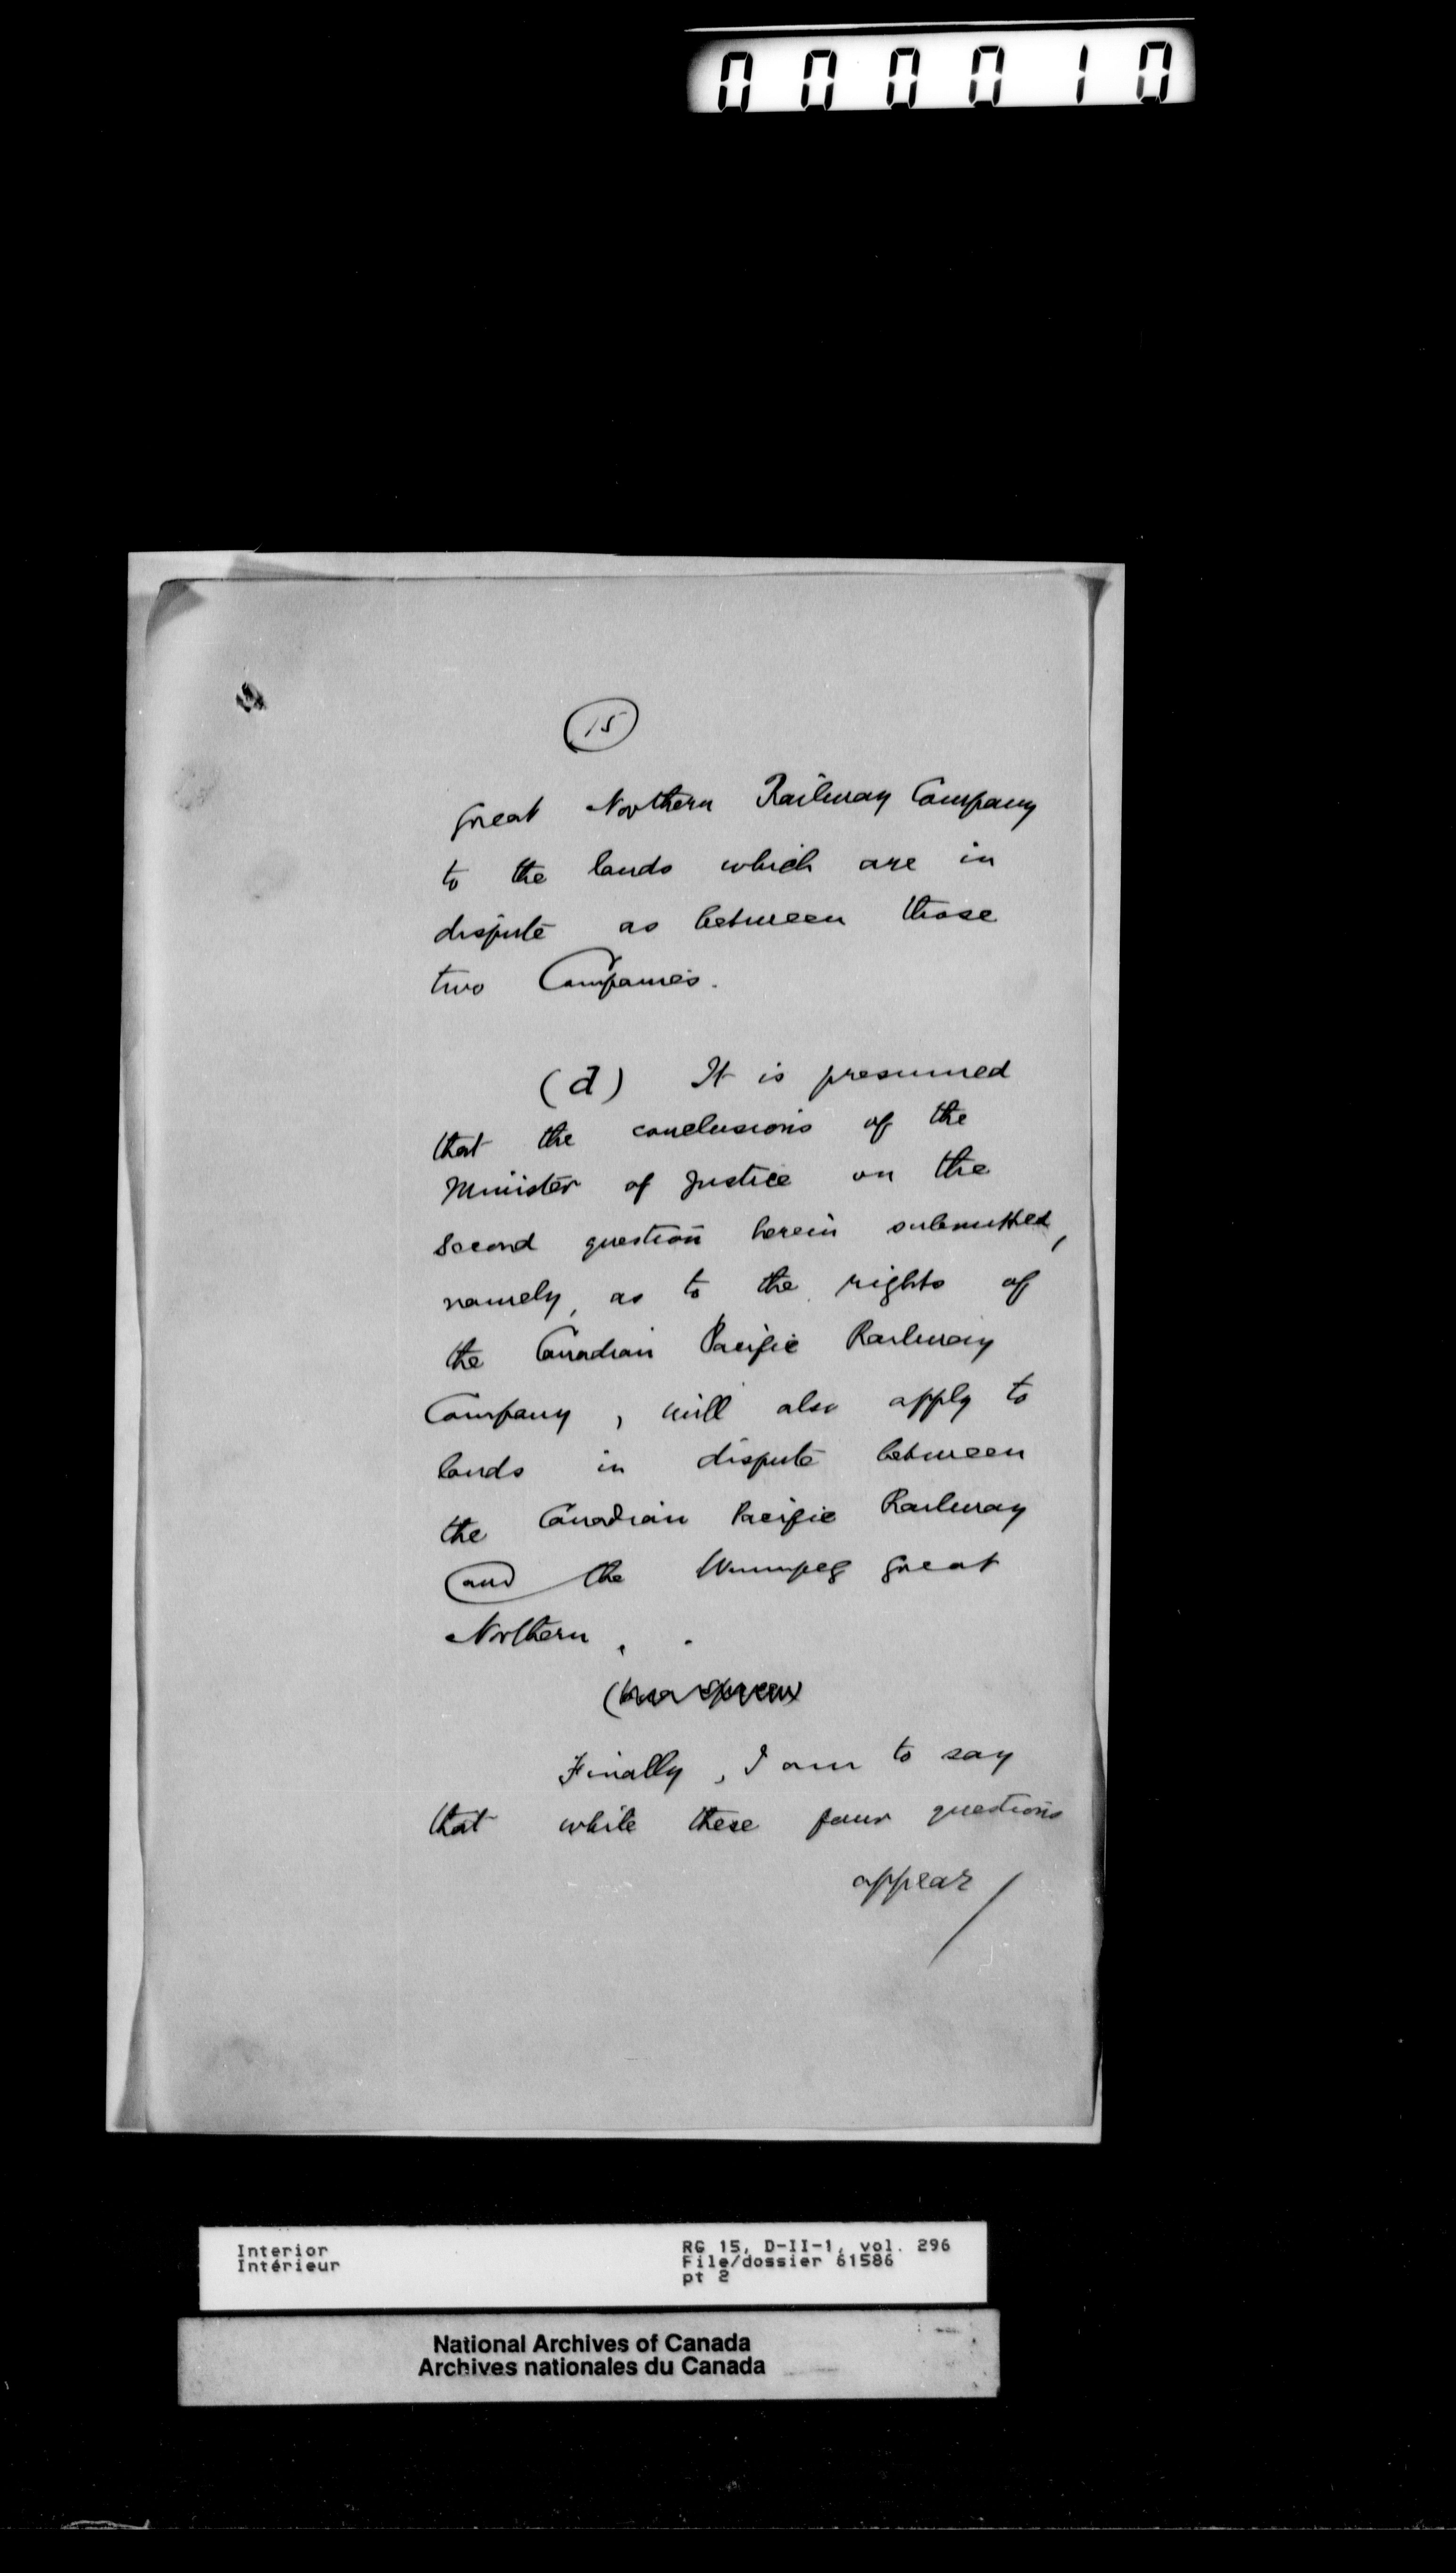 000010
15
Great Northern Railway Company
to the lands which are in
dispute as between those
two Companies.
(d) It is presumed
that the conclusions of the
Minister of Justice on the
second question herein submitted,
namely, as to the rights of
the Canadian Pacific Railway
Company, will also apply to
lands in dispute between
the Canadian Pacific Railway
and the Winnipeg Great
Northern.
Finally, I am to say
that while these four questions
appear/
Interior
Intérieur
RG 15, D-II-1, vol. 296
File/dossier 61586
pt 2
National Archives of Canada
Archives nationales du Canada